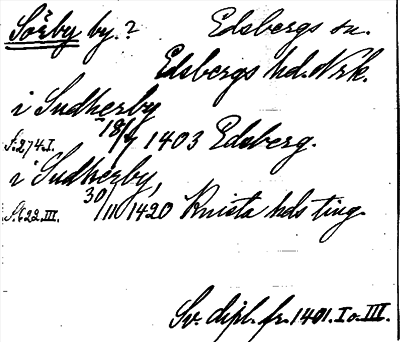 Sörby by.? Edsbergs sn.
Edsbergs hd. Nrk.
i Sudherby
S. 274. I. 18/7 1403 Edsberg.
i Sudherby,
S. 622. III. 30/11 1420 Knista hds ting.
Sv. dipl. fr. 1401. I o. III.